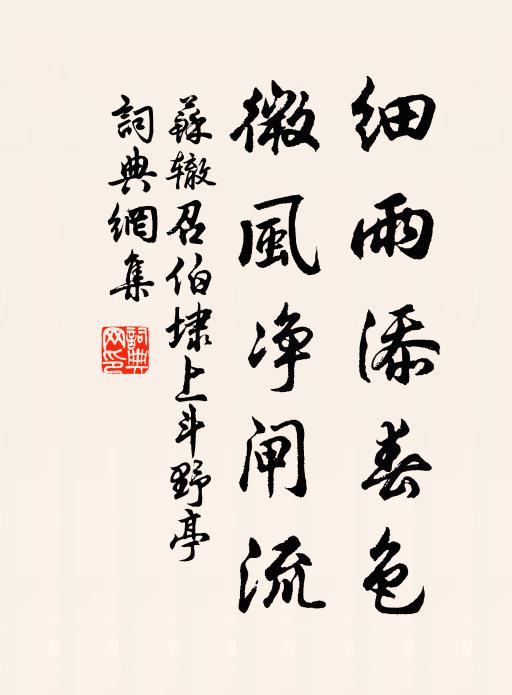 细雨添春色
微風净闸流
蘇辙召伯埭上斗野亭
詞典網集
詞典網印